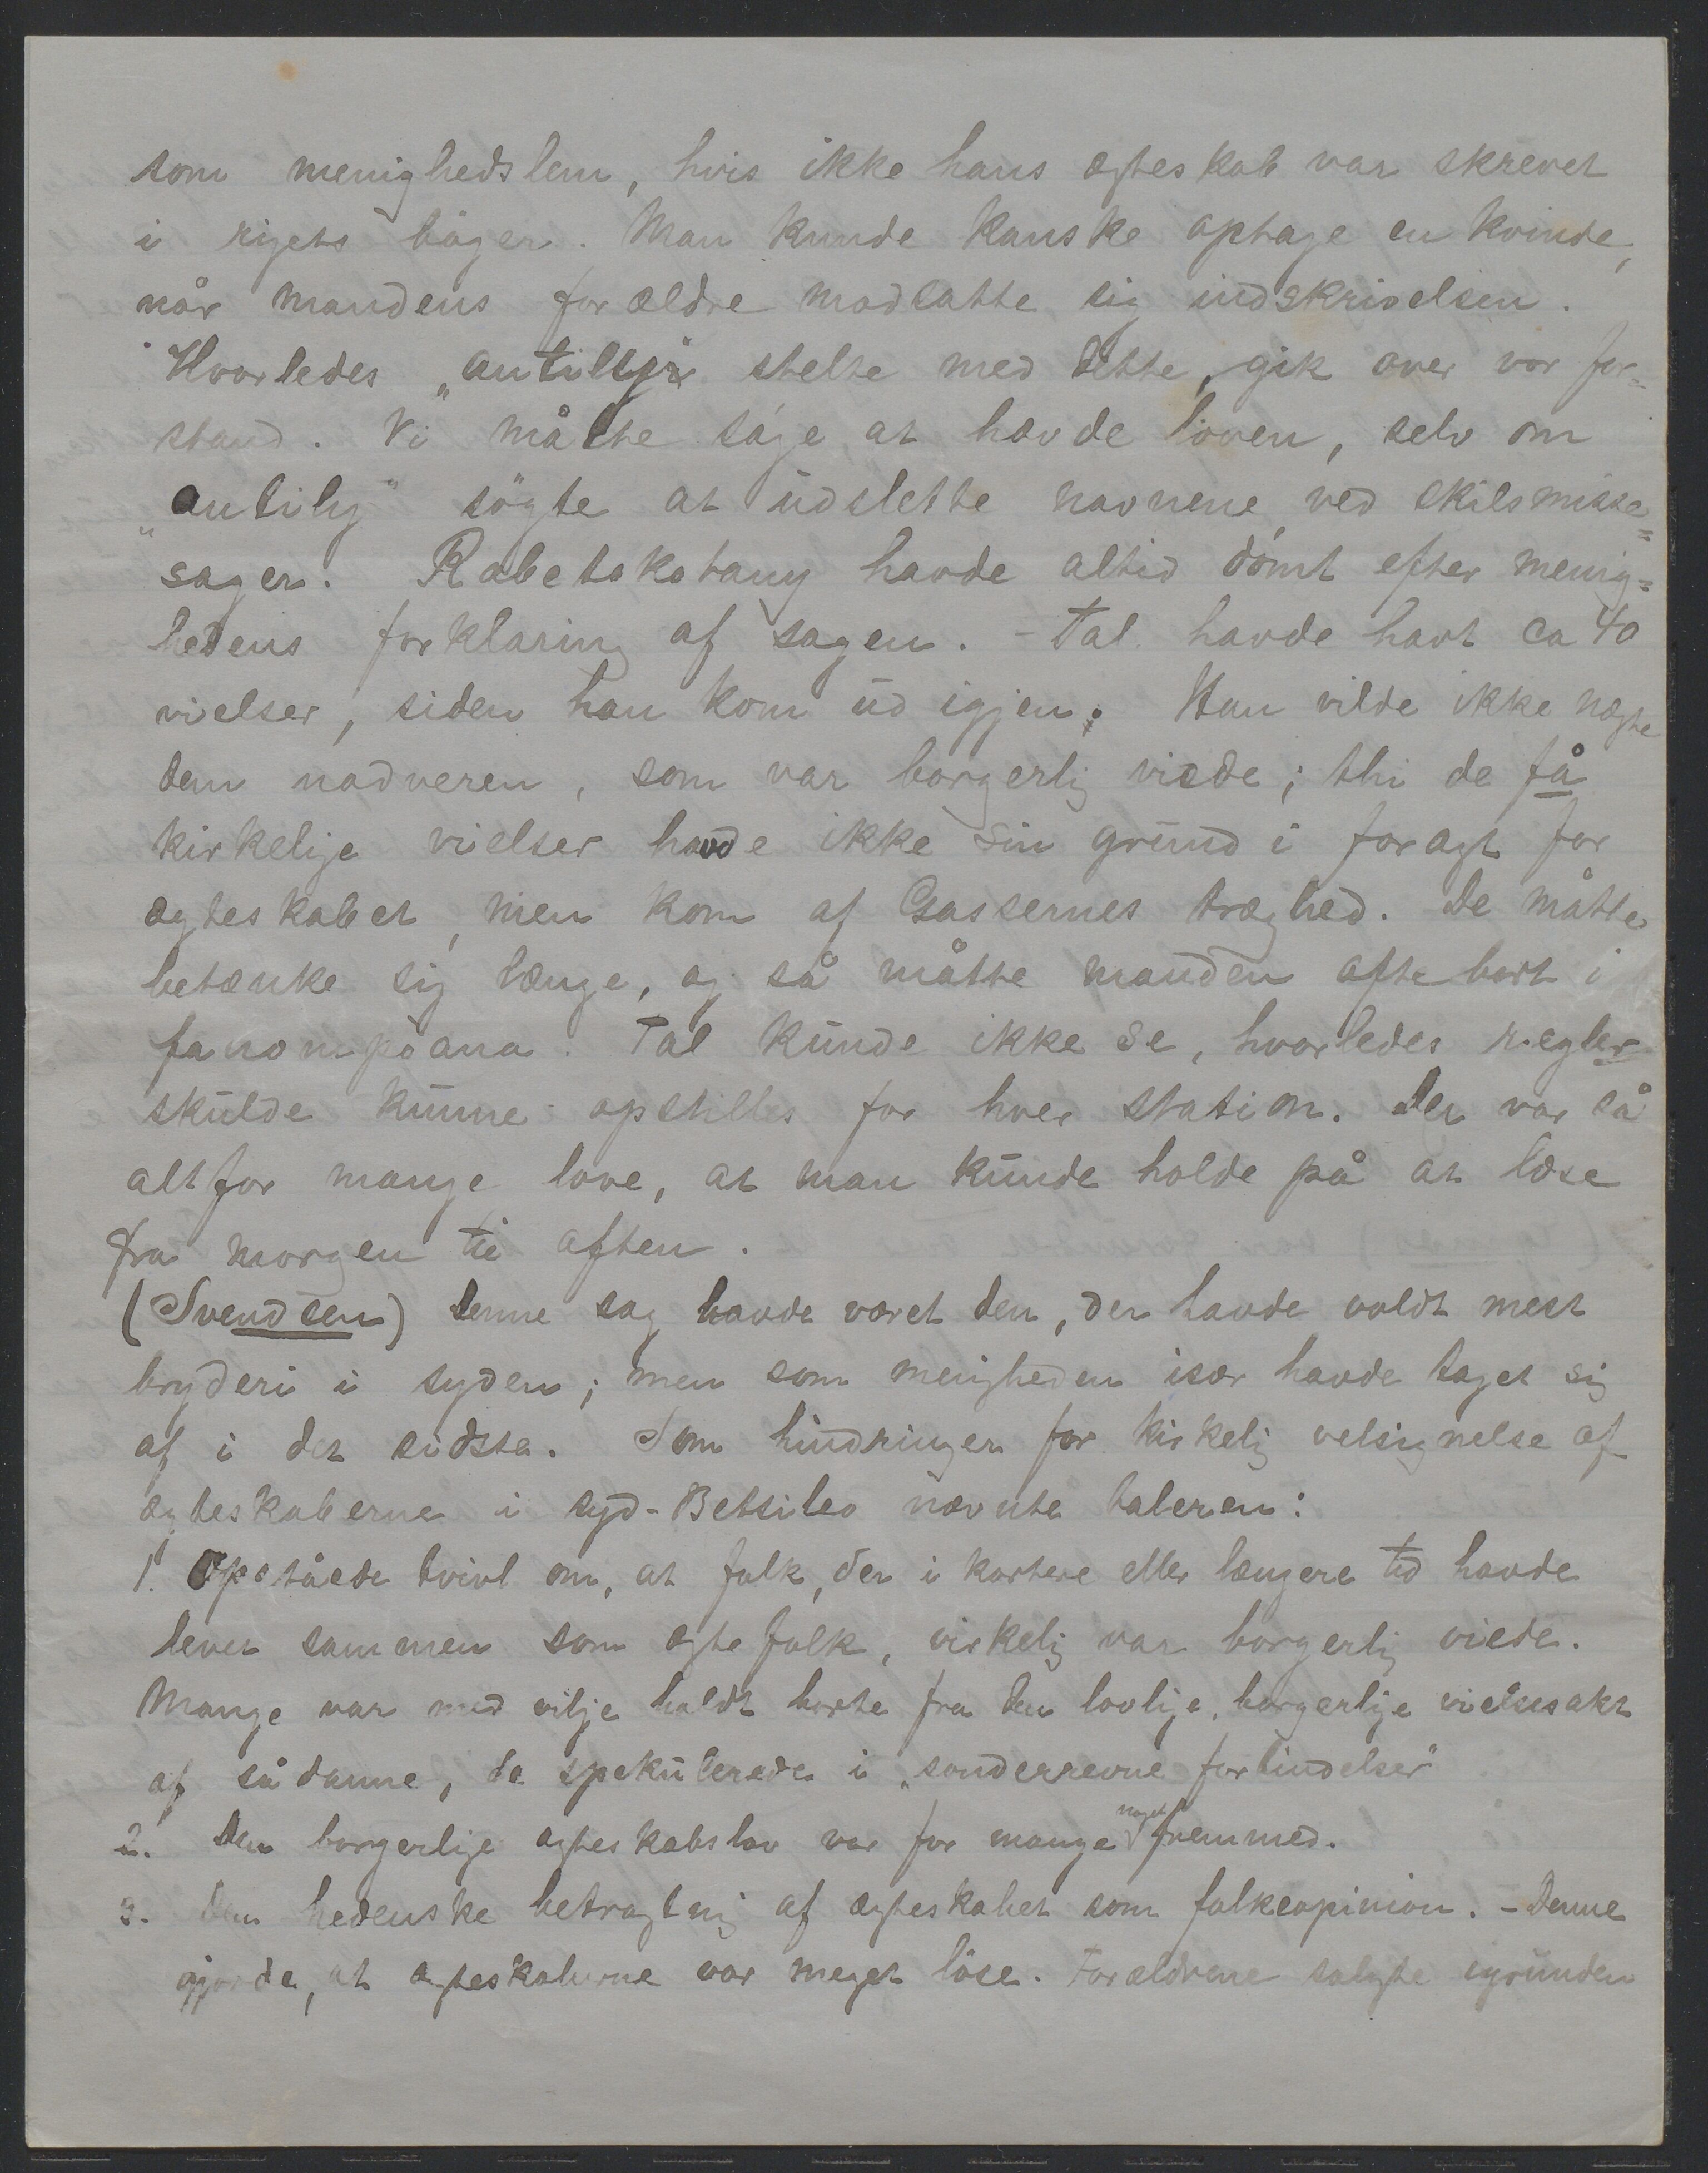 som menighedslem, hvis ikke hans ægteskab var skrevet
i rigets bøger. Man kunde kanske optage en kvinde,
når mandens forældre modsatte sig indskrivelsen.
Hvorledes „antily" stelte med dette, gik over vor for=
stand. Vi måtte søge at hævde loven, selv om
„antily" søgte at udslette navnene ved skilsmisse=
sager. Rabetokotany havde altid dømt efter menig=
hedens forklaring af sagen. - Tal. havde havt ca 40
vielser, siden han kom ud igjen. Han vilde ikke nægte
dem nadveren, som var borgerlig viede; thi de få
kirkelige vielser havde ikke sin grund i foragt for
ægteskabet, men kom af Gassernes træghed. De måtte
betænke sig længe, og så måtte manden ofte bort i
fanompoana. Tal kunde ikke se, hvorledes regler
skulde kunne opstilles for hver station. Der var så
altfor mange love, at man kunde holde på at læse
fra morgen til aften.
(Svendsen) Denne sag havde været den, der havde voldt mest
bryderi i syden; men som menigheden især havde taget sig
af i det sidste. Som hindringer for kirkelig velsignelse af
ægteskaberne i syd-Betsileo nævnte taleren:
1. Opståede tvivl om, at folk, der i kortere eller længere tid havde
levet sammen som ægtefolk, virkelig var borgerlig viede.
Mange var med vilje holdt borte fra den lovlige, borgerlige vielsesakt
af sådanne, de spekulerede i „sønderrevne forbindelser"
2. Den borgerlige ægteskabslov var for mange noget fremmed.
3. Den hedenske betragtnig af ægteskabet som folkeopinion. - Denne
gjorde, at ægteskaberne var meget løse. Forældrene solgte igrunden